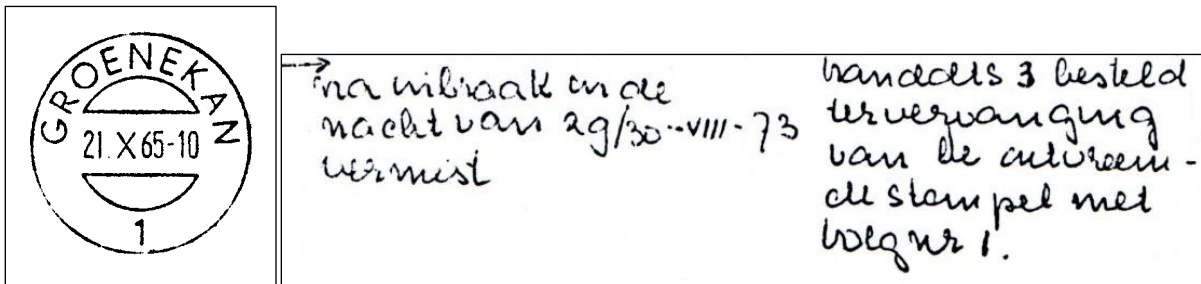 GROENEKAN
21.X65-10
1
na inbraak in de
nacht van 29/30-VIII-73
vermist
3 besteld
ter vervanging
van de ontvreem-
de stempel met
volgnr 1.